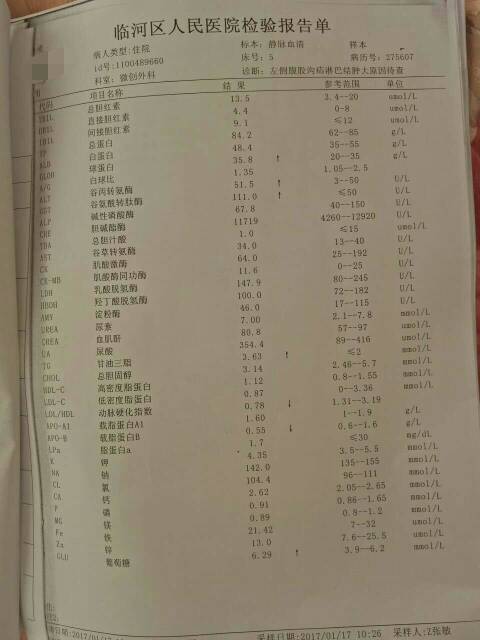 临河区人民医院检验报告单
病人类型:住院 标本: 静脉血清 样本
id号:1100489660 床号: 5 病历号: 275607
科室: 微创外科 诊断: 左侧腹股沟疝淋巴结肿大原因待查
代码 项目名称 结 果 参考范围 单位
TBIL 总胆红素 13.5 3.4--20 umol/L
DBIL 直接胆红素 4.4 0-8 umol/L
IBIL 间接胆红素 9.1 ≤12 umol/L
TP 总蛋白 84.2 62--85 g/L
ALB 白蛋白 48.4 35--55 g/L
GLOB 球蛋白 35.8 ↑ 20--35 g/L
A/G 白球比 1.35 1.05--2.5
ALT 谷丙转氨酶 51.5 ↑ 3--50 U/L
GGT 谷氨酰转肽酶 111.0 ↑ ≤50 U/L
ALP 碱性磷酸酶 67.8 40--150 U/L
CHE 胆碱酯酶 11719 4260--12920 U/L
TBA 总胆汁酸 1.0 ≤15 umol/L
AST 谷草转氨酶 34.0 13--40 U/L
CK 肌酸激酶 64.0 25--192 U/L
CK-MB 肌酸激酶同功酶 11.6 0--25 U/L
LDH 乳酸脱氢酶 147.9 80--245 U/L
HBDH 羟丁酸脱氢酶 100.0 72--182 U/L
AMY 淀粉酶 46.0 17--115 U/L
UREA 尿素 7.00 2.1--7.8 mmol/L
CREA 血肌酐 80.8 57--97 umol/L
UA 尿酸 354.4 89--416 umol/L
TG 甘油三脂 3.63 ↑ ≤2 mmol/L
CHOL 总胆固醇 3.14 2.46--5.7 mmol/L
HDL-C 高密度脂蛋白 1.12 0.8--1.55 mmol/L
LDL-C 低密度脂蛋白 0.87 0--3.36 mmol/L
LDL/HDL 动脉硬化指数 0.78 ↓ 1.31--3.19
APO-A1 载脂蛋白A1 1.60 1--1.9 g/L
APO-B 载脂蛋白B 0.55 ↓ 0.6--1.6 g/L
LPa 脂蛋白a 1.7 ≤30 mg/dL
K 钾 4.35 3.5--5.5 mmol/L
NA 钠 142.0 135--155 mmol/L
CL 氯 104.4 96--111 mmol/L
CA 钙 2.62 2.05--2.65 mmol/L
P 磷 0.91 0.86--1.65 mmol/L
MG 镁 0.89 0.8--1.2 mmol/L
Fe 铁 21.42 7--32 umol/L
Zn 锌 13.0 7.6--25.5 umol/L
GLU 葡萄糖 6.29 ↑ 3.9--6.2 mmol/L
日期:2017/01/17 采样日期:2017/01/17 10:26 采样人:Z张敏